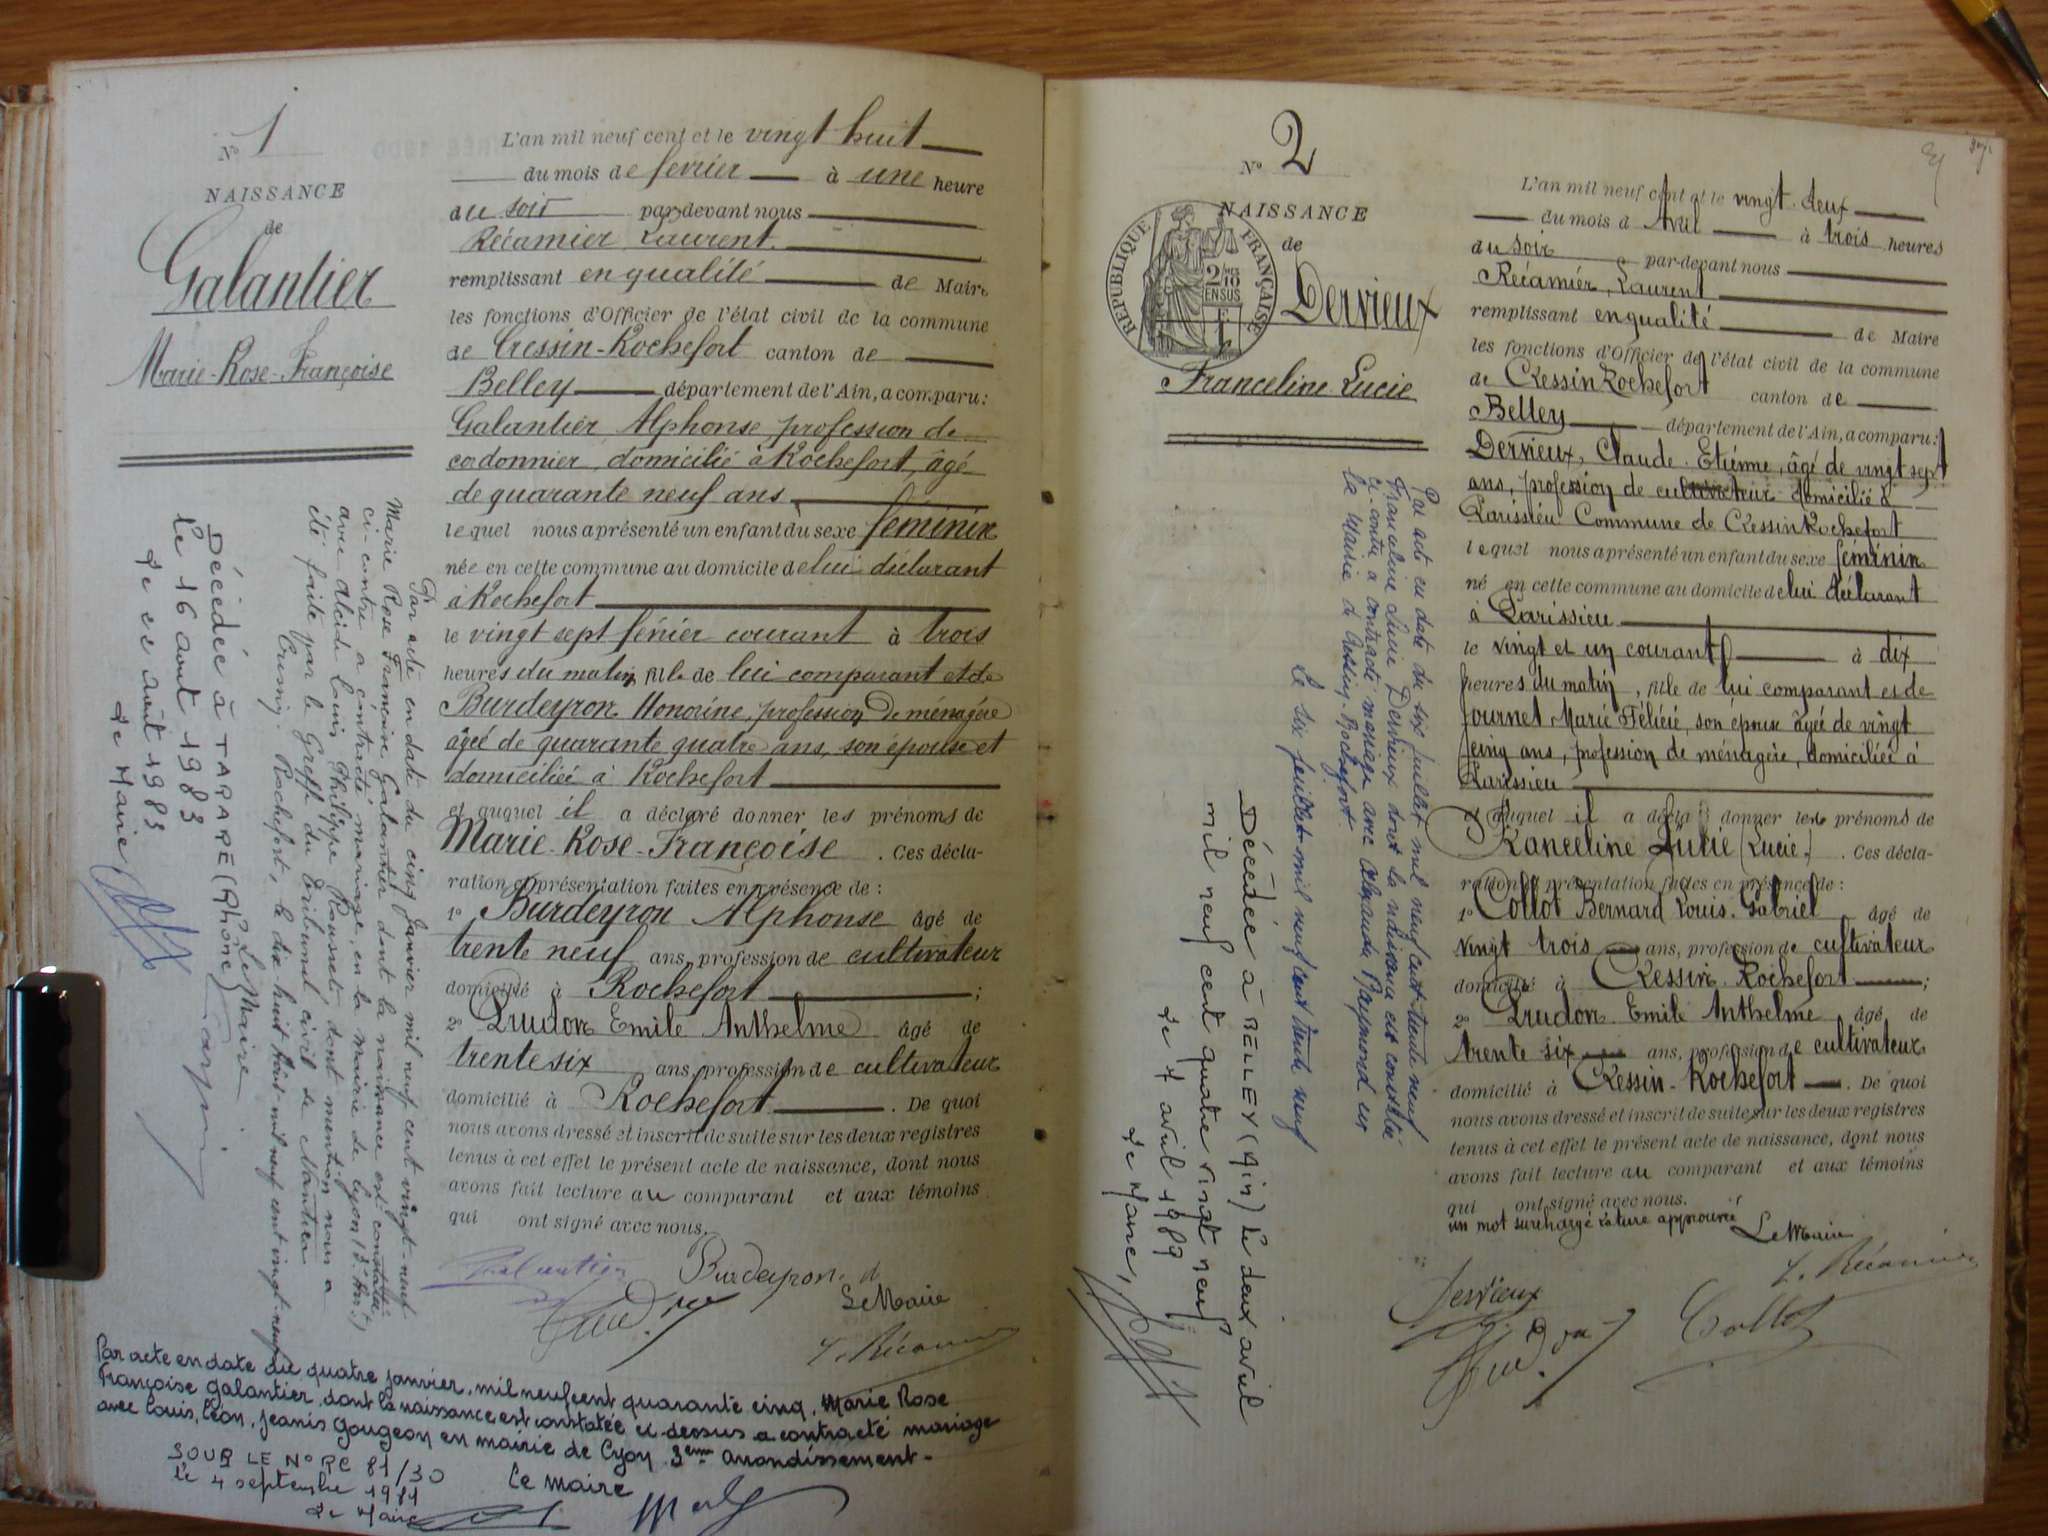 N° 1
NAISSANCE
de
Galantier
Marie-Rose-Françoise
L'an mil neuf cent et le vingt huit
du mois de fevrier à une heure
du soir par-devant nous
Récamier Laurent
remplissant en qualité de Maire
les fonctions d'Officier de l'état civil de la commune
de Cressin-Rochefort canton de
Belley département de l'Ain, a comparu:
Galantier Alphonse profession de
cordonnier, domicilié à Rochefort, âgé
de quarante neuf ans
lequel nous a présenté un enfant du sexe féminin
née en cette commune au domicile de lui déclarant
à Rochefort
le vingt sept février courant à trois
heures du matin, fille de lui comparant et de
Burdeyron Honorine, profession De ménagère
âgée de quarante quatre ans, son épouse et
domiciliée à Rochefort
et auquel il a déclaré donner les prénoms de
Marie-Rose-Françoise. Ces décla-
ration et présentation faites en présence de :
1° Burdeyron Alphonse âgé de
trente neuf ans, profession de cultivateur
domicilié à Rochefort ;
2° Prudon Emile Anthelme âgé de
trente six ans, profession de cultivateur
domicilié à Rochefort. De quoi
nous avons dressé et inscrit de suite sur les deux registres
tenus à cet effet le présent acte de naissance, dont nous
avons fait lecture au comparant et aux témoins
qui ont signé avec nous.
Galantier
Burdeyron. a
Le Maire
L. Récamier
Par acte en date du cinq Janvier mil neuf cent vingt-neuf
Marie Rose Françoise Galantier dont la naissance est constatée
ci-contre a contracté mariage, en la mairie de Lyon
avec Alcide Louis Philippe Rousset, dont mention nous a
été faite par le Greffe du Tribunal civil de Nantua
Cressin Rochefort, le dix huit Août mil neuf cent vingt-neuf
Le Maire
Décédée à TARARE (Rhône)
le 16 aout 1983
Le 22 août 1983
Le Maire
Par acte en date du quatre janvier, mil neuf cent quarante cinq, Marie Rose
Françoise Galantier, dont la naissance est constatée ci-dessus a contracté mariage
avec Louis, Léon, Jeanis Gougeon en mairie de Lyon 3eme arrondissement-
Le maire
SOUR LE N° RC 81/30
Le 4 septembre 1981
Le Maire
N° 2
NAISSANCE
de
RÉPUBLIQUE FRANÇAISE
2/10
EN SUS
Dervieux
Franceline Lucie
L'an mil neuf cent et le vingt-deux
du mois d Avril à trois heures
du soir par-devant nous
Récamier, Laurent
remplissant en qualité de Maire
les fonctions d'Officier de l'état civil de la commune
de Cressin Rochefort canton de
Belley département de l'Ain, a comparu:
Dervieux, Claude Etienne, âgé de vingt sept
ans, profession de cultivateur domicilié à
Parissieu Commune de Cressin Rochefort
lequel nous a présenté un enfant du sexe féminin
né en cette commune au domicile de lui déclarant
à Parissieu
le vingt et un courant à dix
heures du matin, fille de lui comparant et de
Journet Marie Félicie, son épouse âgée de vingt
cinq ans, profession de ménagère, domiciliée à
Parissieu
et auquel il a déclaré donner les prénoms de
Franceline Lucie (Lucie). Ces décla-
ration et présentation faites en présence de :
1° Collot Bernard Louis Gabriel âgé de
vingt trois ans, profession de cultivateur
domicilié à Cressin Rochefort ;
2° Prudon Emile Anthelme âgé de
trente six ans, profession de cultivateur
domicilié à Cressin-Rochefort. De quoi
nous avons dressé et inscrit de suite sur les deux registres
tenus à cet effet le présent acte de naissance, dont nous
avons fait lecture au comparant et aux témoins
qui ont signé avec nous.
un mot surchargé rature approuvée
Le Maire
L. Récamier
Dervieux
Collot
Par acte en date du six juillet mil neuf cent trente neuf
Franceline Lucie Dervieux dont la naissance est constatée
ci-contre a contracté mariage avec Raymond en
la Mairie de Cressin-Rochefort.
Le six juillet mil neuf cent trente neuf
Décédée à BELLEY (Ain) le deux avril
mil neuf cent quatre vingt neuf
Le 7 avril 1989
Le Maire,